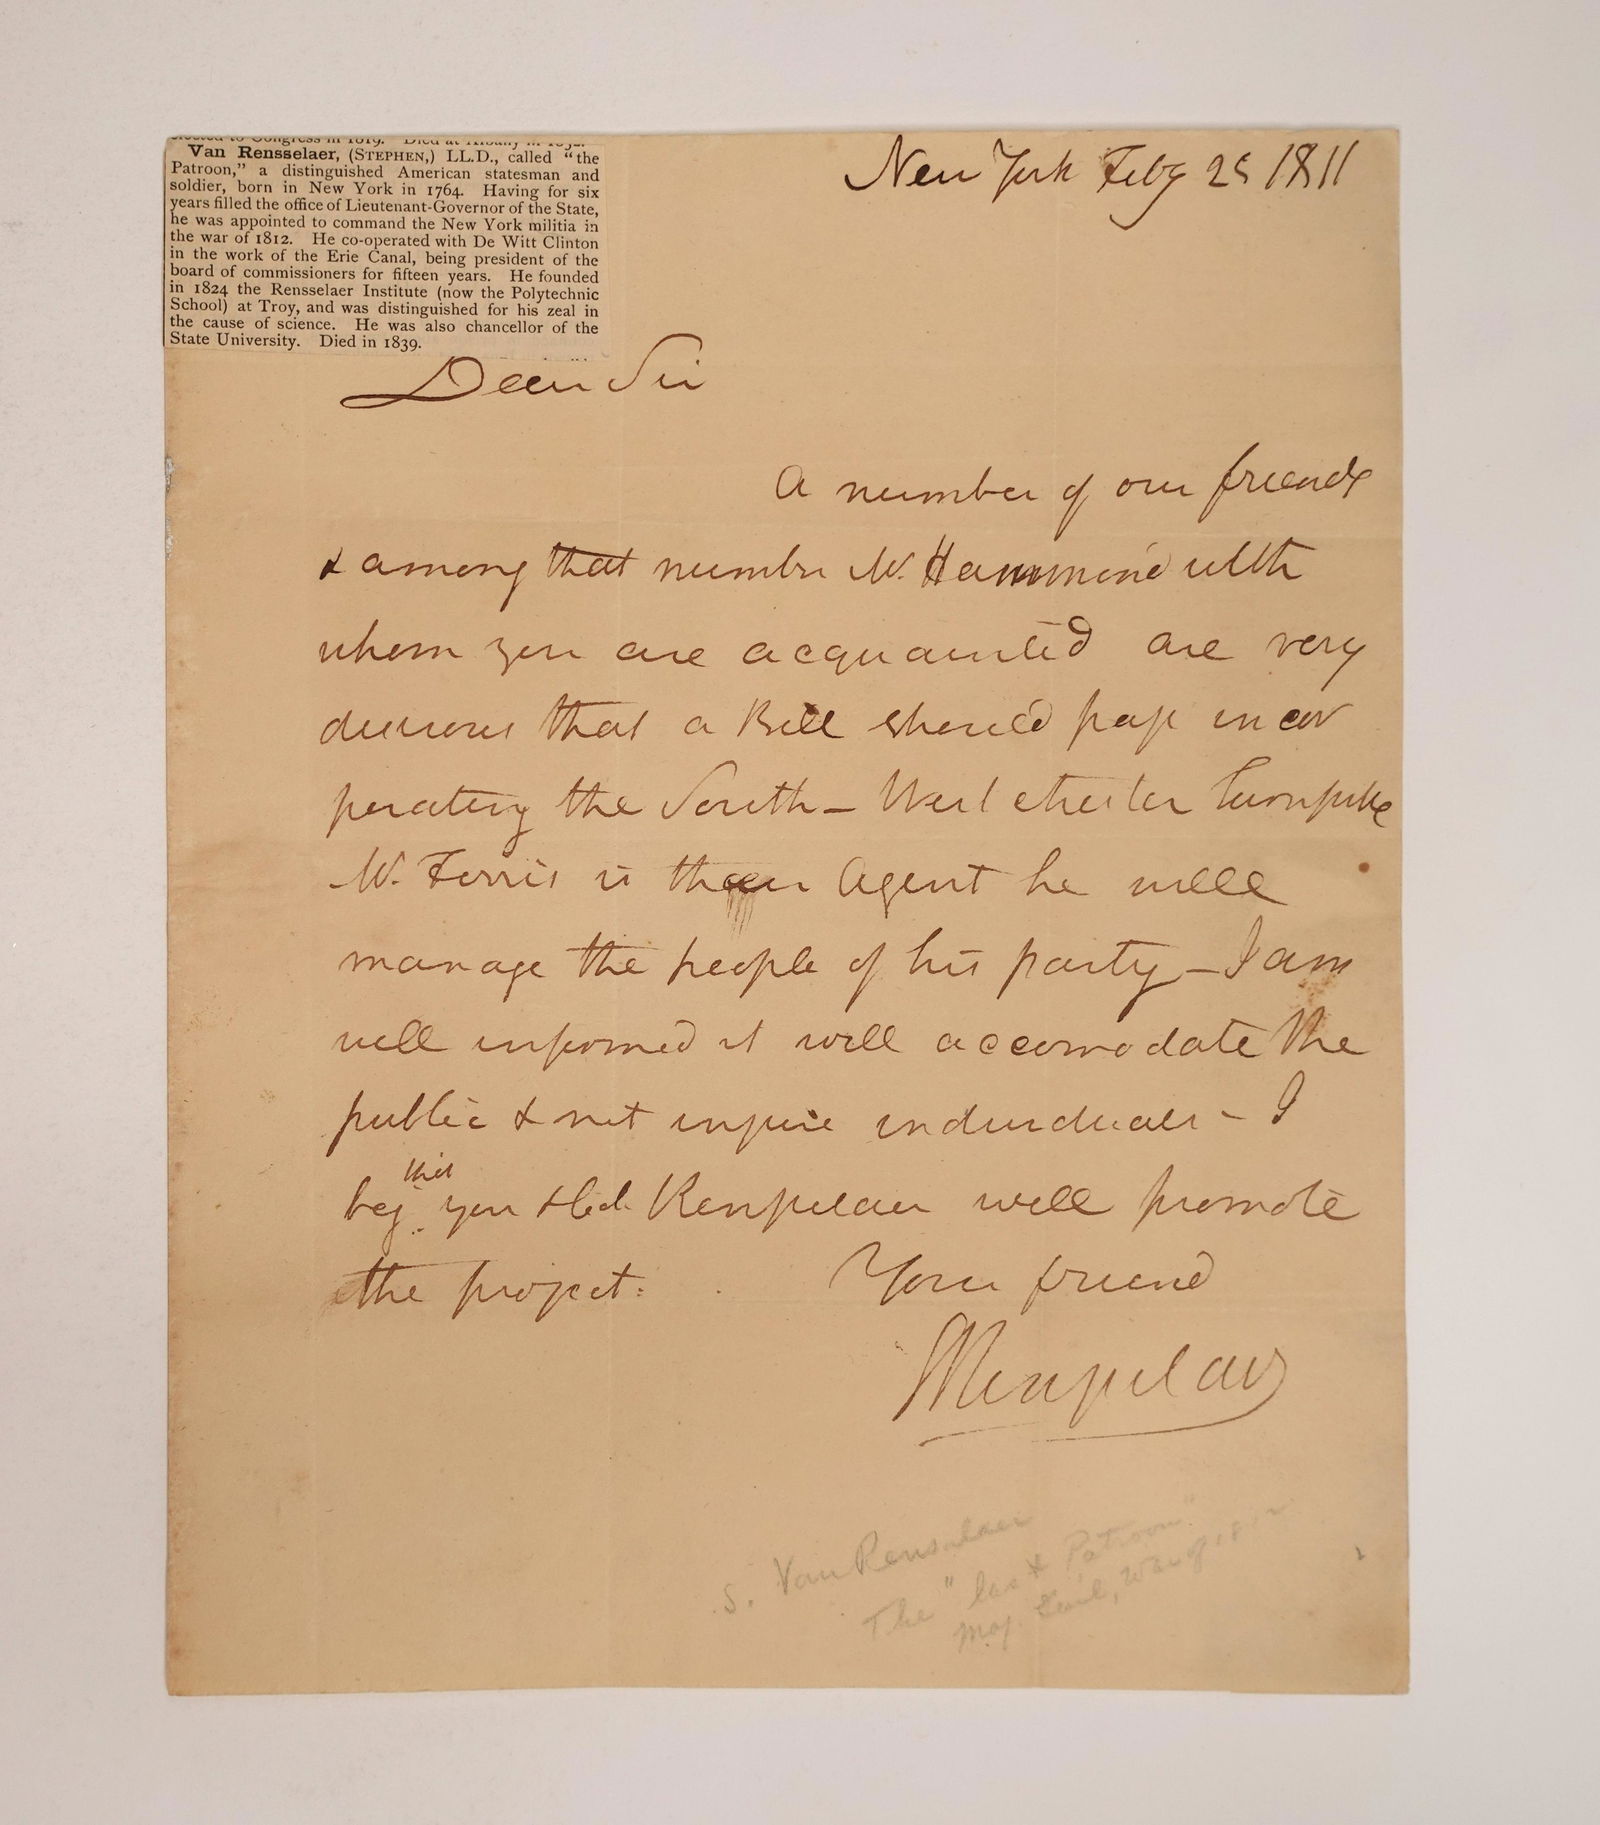 elected to Congress in 1819. Died at Albany in 1852.
Van Rensselaer, (STEPHEN,) LL.D., called “the
Patroon,” a distinguished American statesman and
soldier, born in New York in 1764. Having for six
years filled the office of Lieutenant-Governor of the State,
he was appointed to command the New York militia in
the war of 1812. He co-operated with De Witt Clinton
in the work of the Erie Canal, being president of the
board of commissioners for fifteen years. He founded
in 1824 the Rensselaer Institute (now the Polytechnic
School) at Troy, and was distinguished for his zeal in
the cause of science. He was also chancellor of the
State University. Died in 1839.
New York Feby 25 1811
Dear Sir
A number of our friends
& among that number Mr. Hammond with
whom you are acquainted are very
desirous that a Bill should pass incor
porating the South - West chester Turnpike
Mr. Ferris is their Agent he will
manage the people of his party - I am
well informed it will accomodate the
public & not injure individuals - I
beg that you & Rensselaer will promote
the project.
Your friend
SVRensselaer
S. Van Rensselaer
The "last Patroon"
Maj. War of 1812